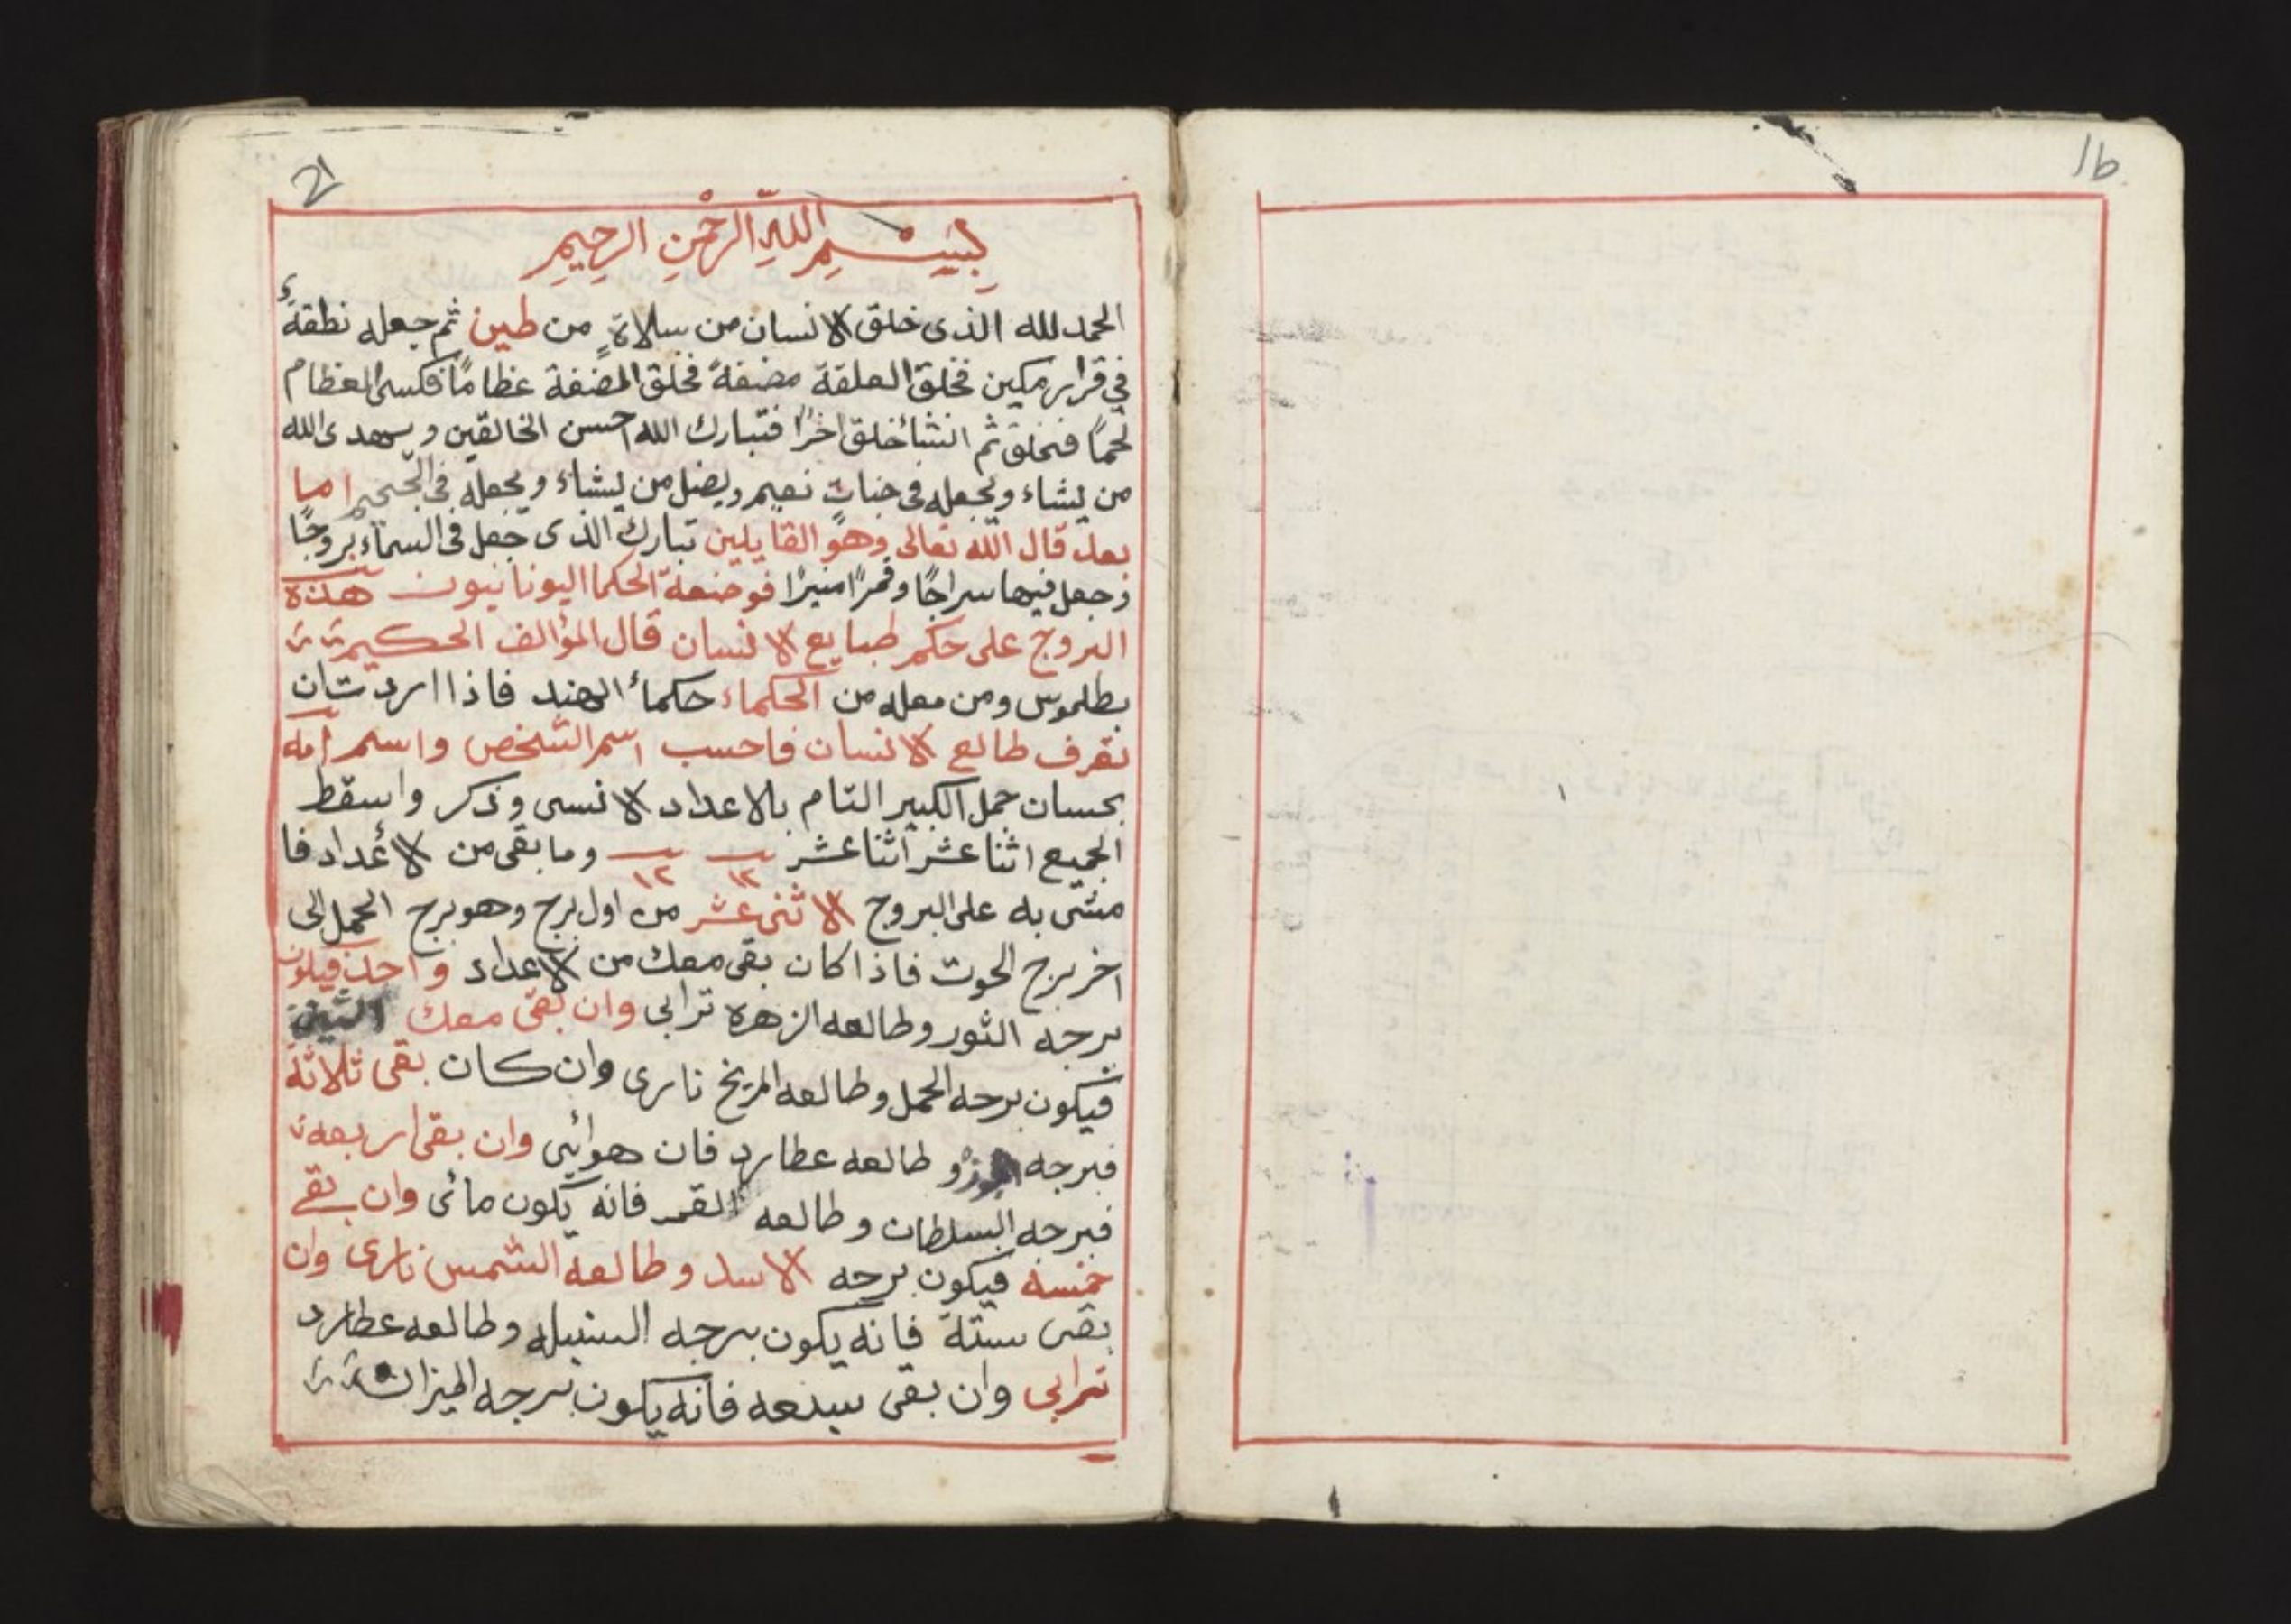 1b
21
بسم الله الرحمن الرحيم
الحمد لله الذى خلق الانسان من سلالاة من طين ثم جعله نطفة
في قرار مكين فخلق العلقة مضغةً فخلق المضغة عظاماً فكسى العظام
لحمًا فتخلق ثم انشأ خلق اخرًا فتبارك الله احسن الخالقين ويهدى الله
من يشاء ويجعله فى جنات نعيم ويضل من يشاء ويجعله فى الجحيم اما
بعد قال الله تعالى وهو القايلين تبارك الذى جعل فى السماء بروجًا
وجعل فيها سراجًا وقمرًا منيرًا فوضعة الحكما اليونانيون هذه
البروج على حكم طبايع الانسان قال المؤالف الحكيم
بطلموس ومن معله من الحكماء حكماء الهند فاذا اردت ان
تعرف طالع الانسان فاحسب اسم الشخص واسم امه
بحسان جمل الكبير التام بالاعداد الانسى وذكر واسقط
الجميع اثنا عشر اثنا عشر وما بقى من الأعداد فا
١٢ ١٢
مشى به على البروج الاثنى عشر من اول برج وهو برج الحمل الى
اخر برج الحوت فاذا كان بقى معك من الاعداد واحد فيكون
برجه الثور وطالعه الزهره ترابى وان بقى معك اثنين
فيكون برجه الحمل وطالعه المريخ نارى وان كان بقى ثلاثة
فبرجه وطالعه عطارد فان هوائى وان بقى اربعه
فبرجه السلطان وطالعه القمر فانه يكون مائى وان بقى
خمسه فيكون برجه الاسد وطالعه الشمس نارى وان
بقى ستة فانه يكون برجه السنبله وطالعه عطارد
ترابى وان بقى سبعه فانه يكون برجه الميزان